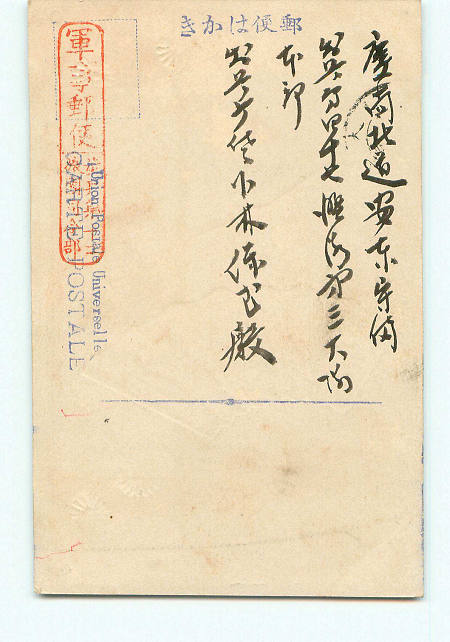 郵便はかき
慶尚北道安東守備
歩兵第四十七聯隊第三大隊
本部
歩兵少佐小林殿
軍事郵便
Union Postale Universelle.
CARTE POSTALE